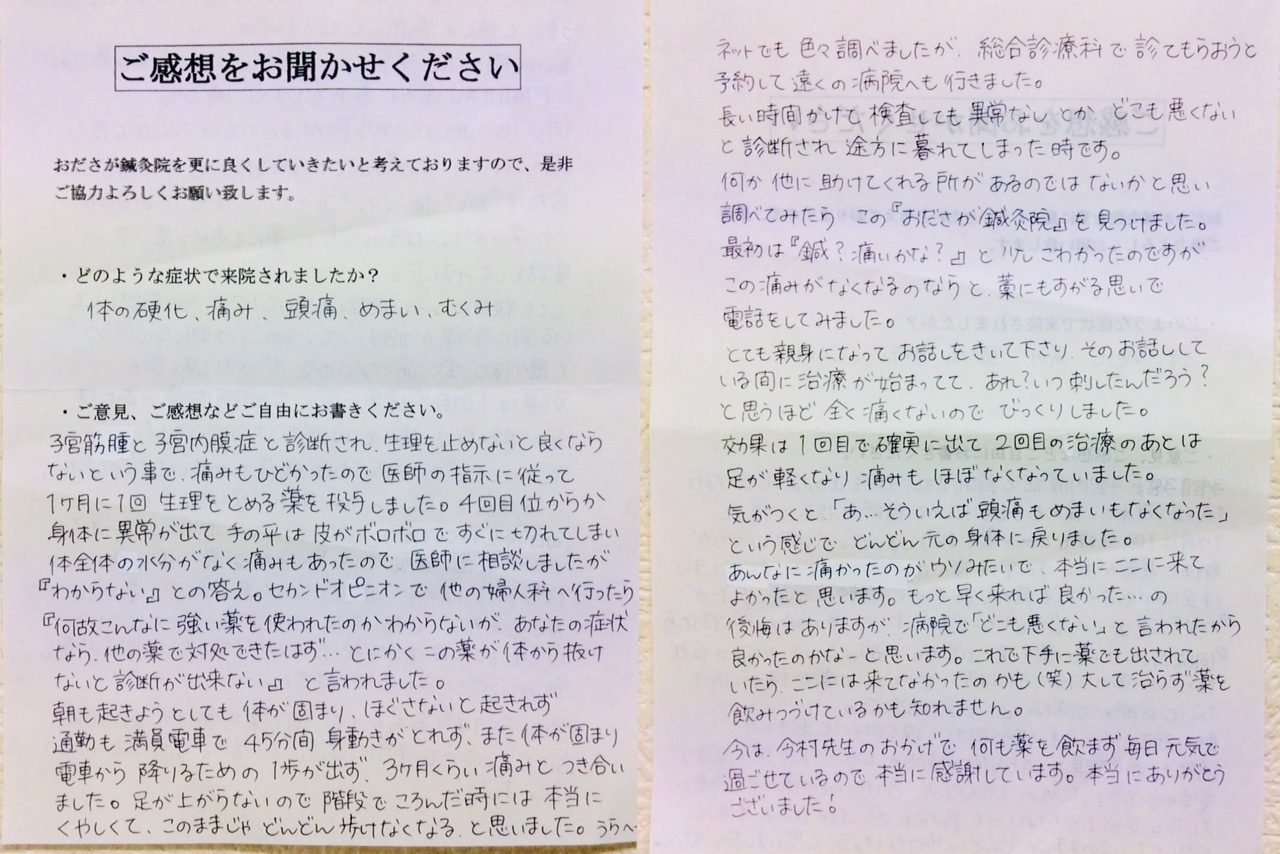 ご感想をお聞かせください
おださが鍼灸院を更に良くしていきたいと考えておりますので、是非
ご協力よろしくお願い致します。
・どのような症状で来院されましたか？
体の硬化、痛み、頭痛、めまい、むくみ
・ご意見、ご感想などご自由にお書きください。
子宮筋腫と子宮内膜症と診断され、生理を止めないと良くなら
ないという事で、痛みもひどかったので医師の指示に従って
1ヶ月に1回 生理をとめる薬を投与しました。4回目位からか
身体に異常が出て 手の平は皮がボロボロですぐに切れてしまい
体全体の水分がなく痛みもあったので、医師に相談しましたが
『わからない』との答え。セカンドオピニオンで他の婦人科へ行ったら
『何故こんなに強い薬を使われたのかわからないが、あなたの症状
なら、他の薬で対処できたはず… とにかくこの薬が体から抜け
ないと診断が出来ない』と言われました。
朝も起きようとしても体が固まり、ほぐさないと起きれず
通勤も満員電車で45分間 身動きがとれず、また体が固まり
電車から降りるための1歩が出ず、3ヶ月くらい痛みとつき合い
ました。足が上がらないので階段でころんだ時には本当に
くやしくて、このままじゃどんどん歩けなくなる、と思いました。うらへ
ネットでも色々調べましたが、総合診療科で診てもらおうと
予約して遠くの病院へも行きました。
長い時間かけて検査しても異常なしとか、どこも悪くない
と診断され途方に暮れてしまった時です。
何か他に助けてくれる所があるのではないかと思い
調べてみたら この『おださが鍼灸院』を見つけました。
最初は『鍼？痛いかな？』と少しこわかったのですが
この痛みがなくなるのならと、藁にもすがる思いで
電話をしてみました。
とても親身になってお話しをきいて下さり、そのお話しして
いる間に治療が始まってて、あれ？いつ刺したんだろう？
と思うほど全く痛くないのでびっくりしました。
効果は1回目で確実に出て2回目の治療のあとは
足が軽くなり痛みもほぼなくなっていました。
気がつくと「あ…そういえば頭痛もめまいもなくなった」
という感じでどんどん元の身体に戻りました。
あんなに痛かったのがウソみたいで、本当にここに来て
よかったと思います。もっと早く来れば良かった…の
後悔はありますが、病院で「どこも悪くない」と言われたから
良かったのかなーと思います。これで下手に薬でも出されて
いたら、ここには来てなかったのかも（笑）大して治らず薬を
飲みつづけているかも知れません。
今は、今村先生のおかげで何も薬を飲まず毎日元気で
過ごせているので、本当に感謝しています。本当にありがとう
ございました！